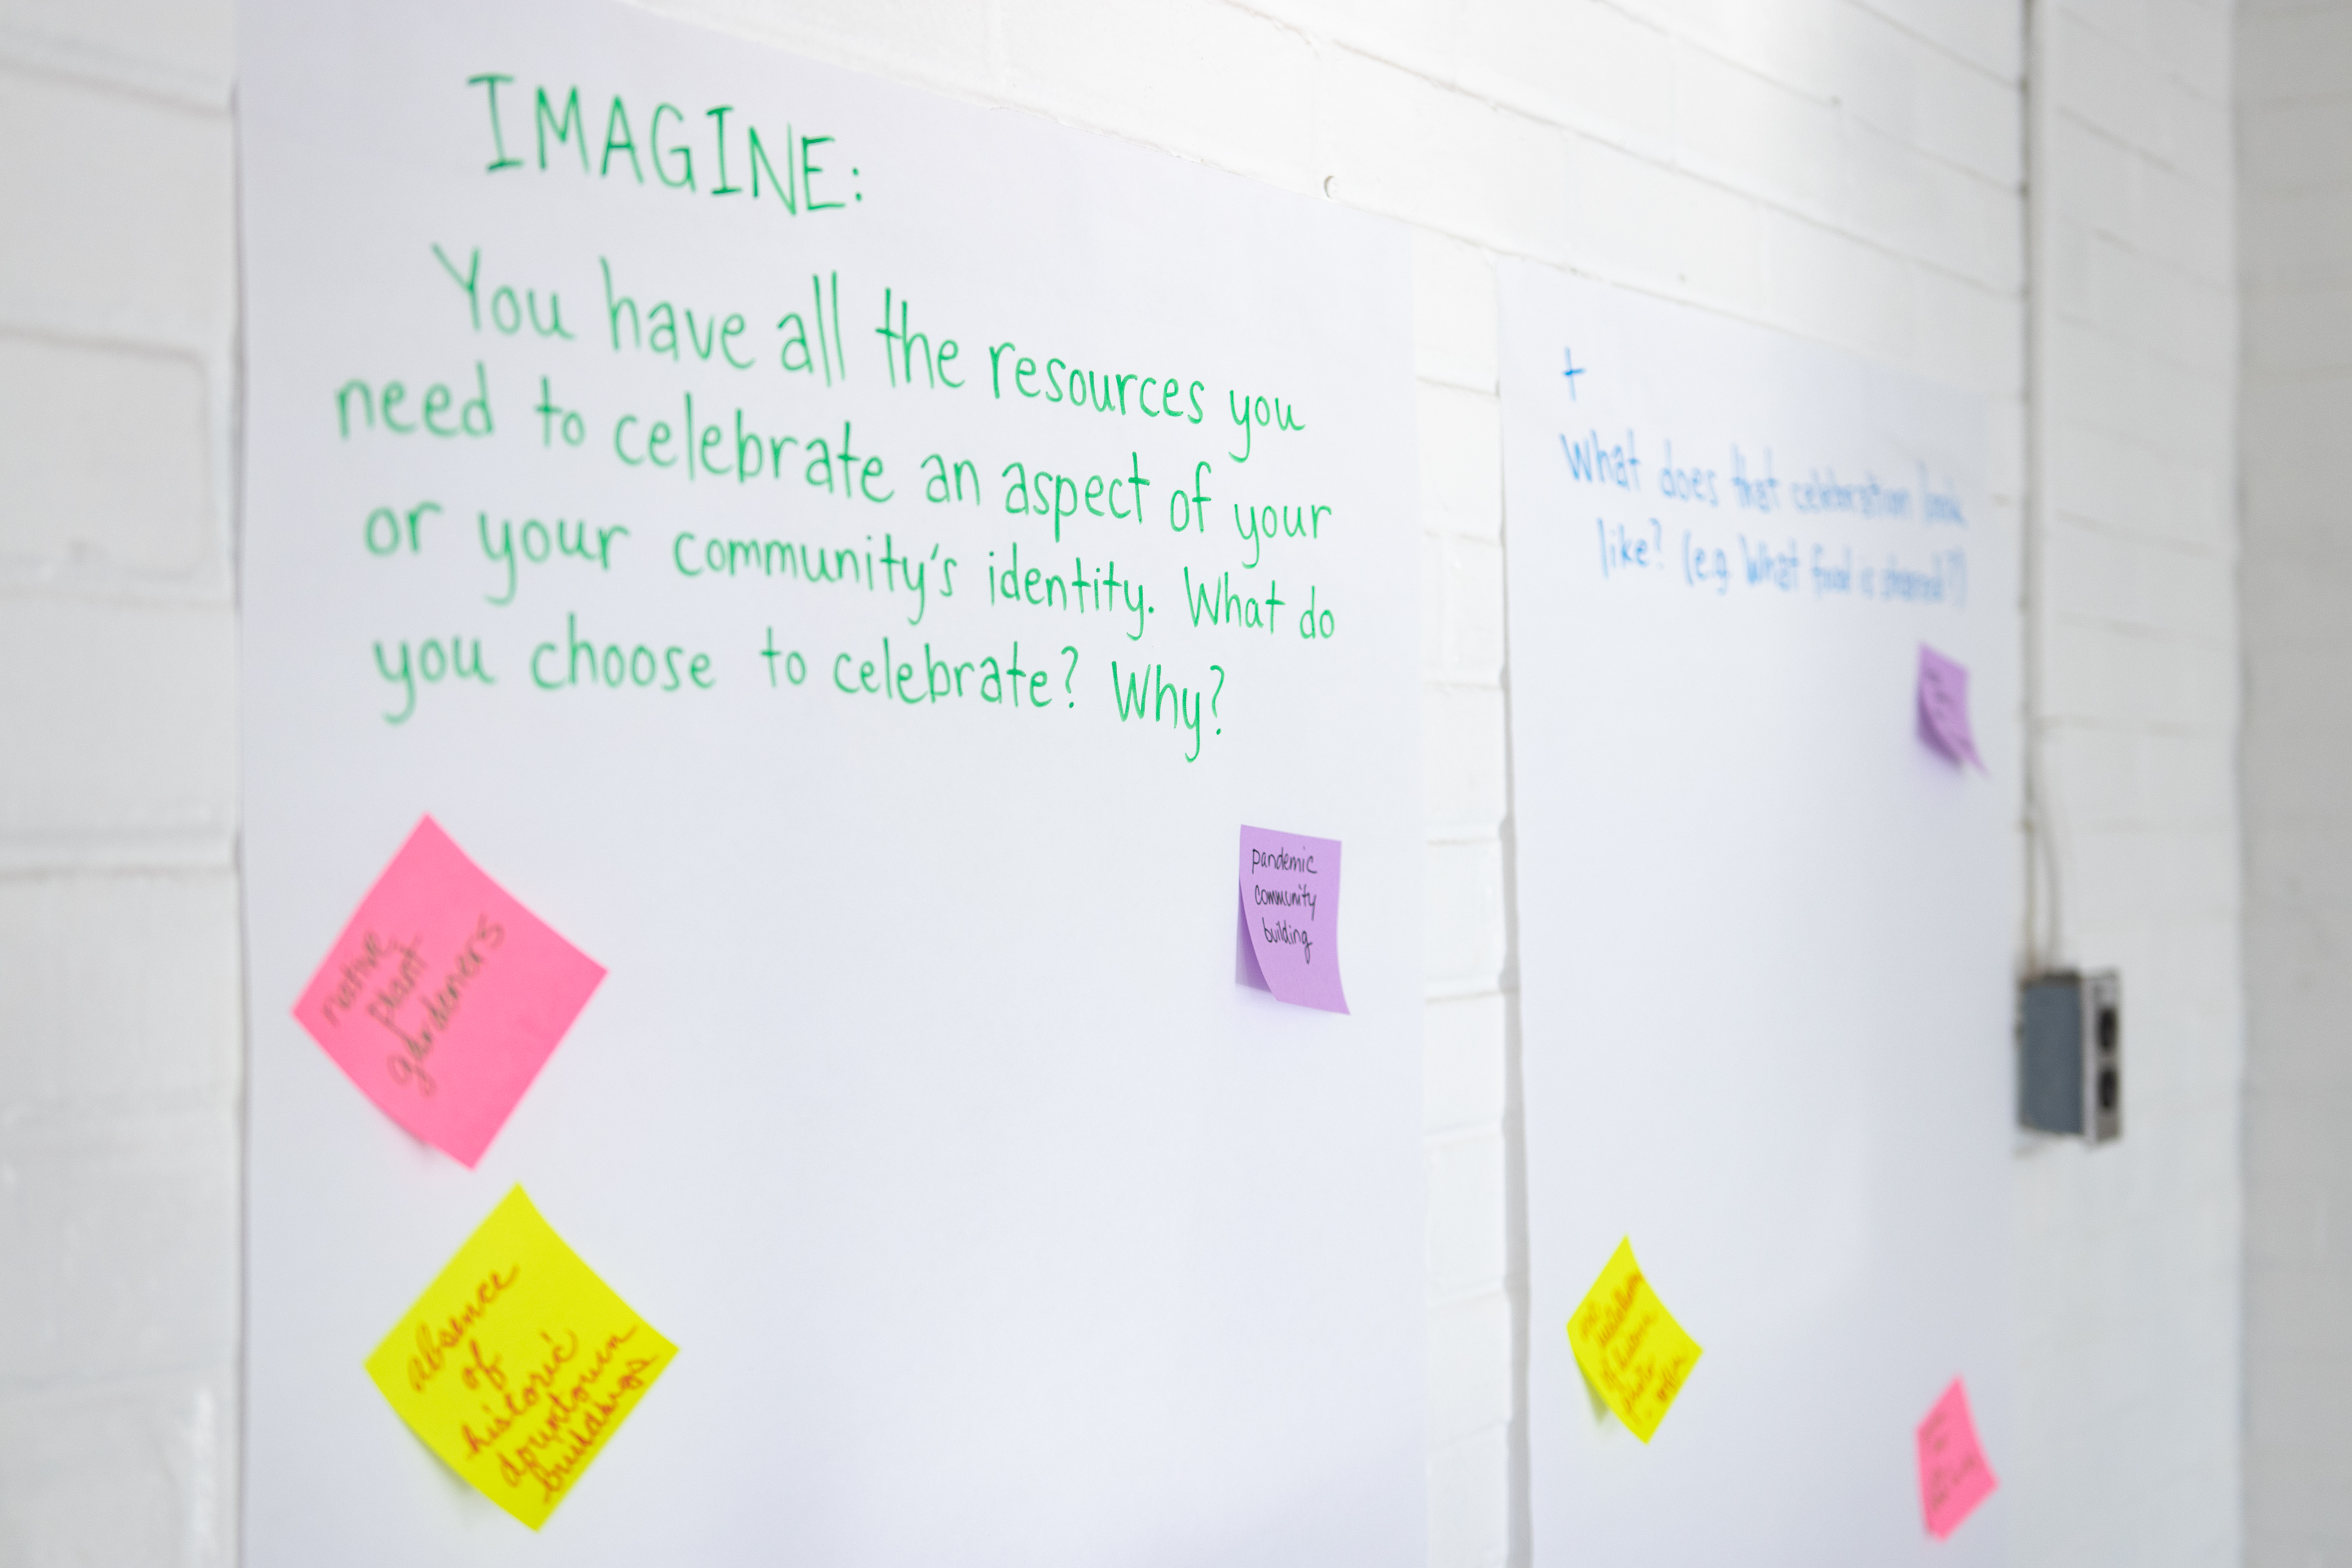 IMAGINE:
You have all the resources you
need to celebrate an aspect of your
or your community's identity. What do
you choose to celebrate? Why?
native
plant
gardeners
pandemic
community
building
absence
of
historic
downtown
buildings
+
What does that celebration look
like? (e.g. What food is shared?)